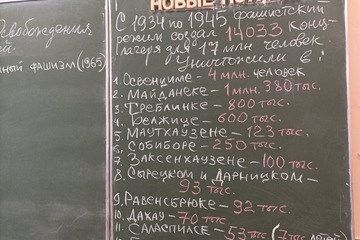 НОВЫЕ
свобождения
ей.
нный фашизм (1965)
С 1934 по 1945 фашистский
режим создал 14033 конц-
лагеря для 17 млн человек
Уничтожили в:
1. Освенциме – 4 млн. человек
2. Майданеке – 1 млн. 380 тыс.
3. Треблинке – 800 тыс.
4. Белжице – 600 тыс.
5. Маутхаузене – 123 тыс.
6. Собиборе – 250 тыс.
7. Заксенхаузене – 100 тыс.
8. Сырецком и Дарницком –
93 тыс.
9. Равенсбрюке – 92 тыс.
10. Дахау – 70 тыс.
11. Саласпилсе – 53 тыс (7 тыс.